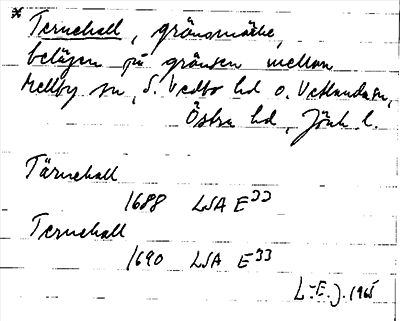 * Ternehall, gränsmärke,
belägen på gränsen mellan
Mellby sn, S. Vedbo hd o. Vetlanda sn,
Östra hd, Jönk. l.
Tärnehall
1688 LSA E33
Ternehall
1690 LSA E33
L-E. J. 1965